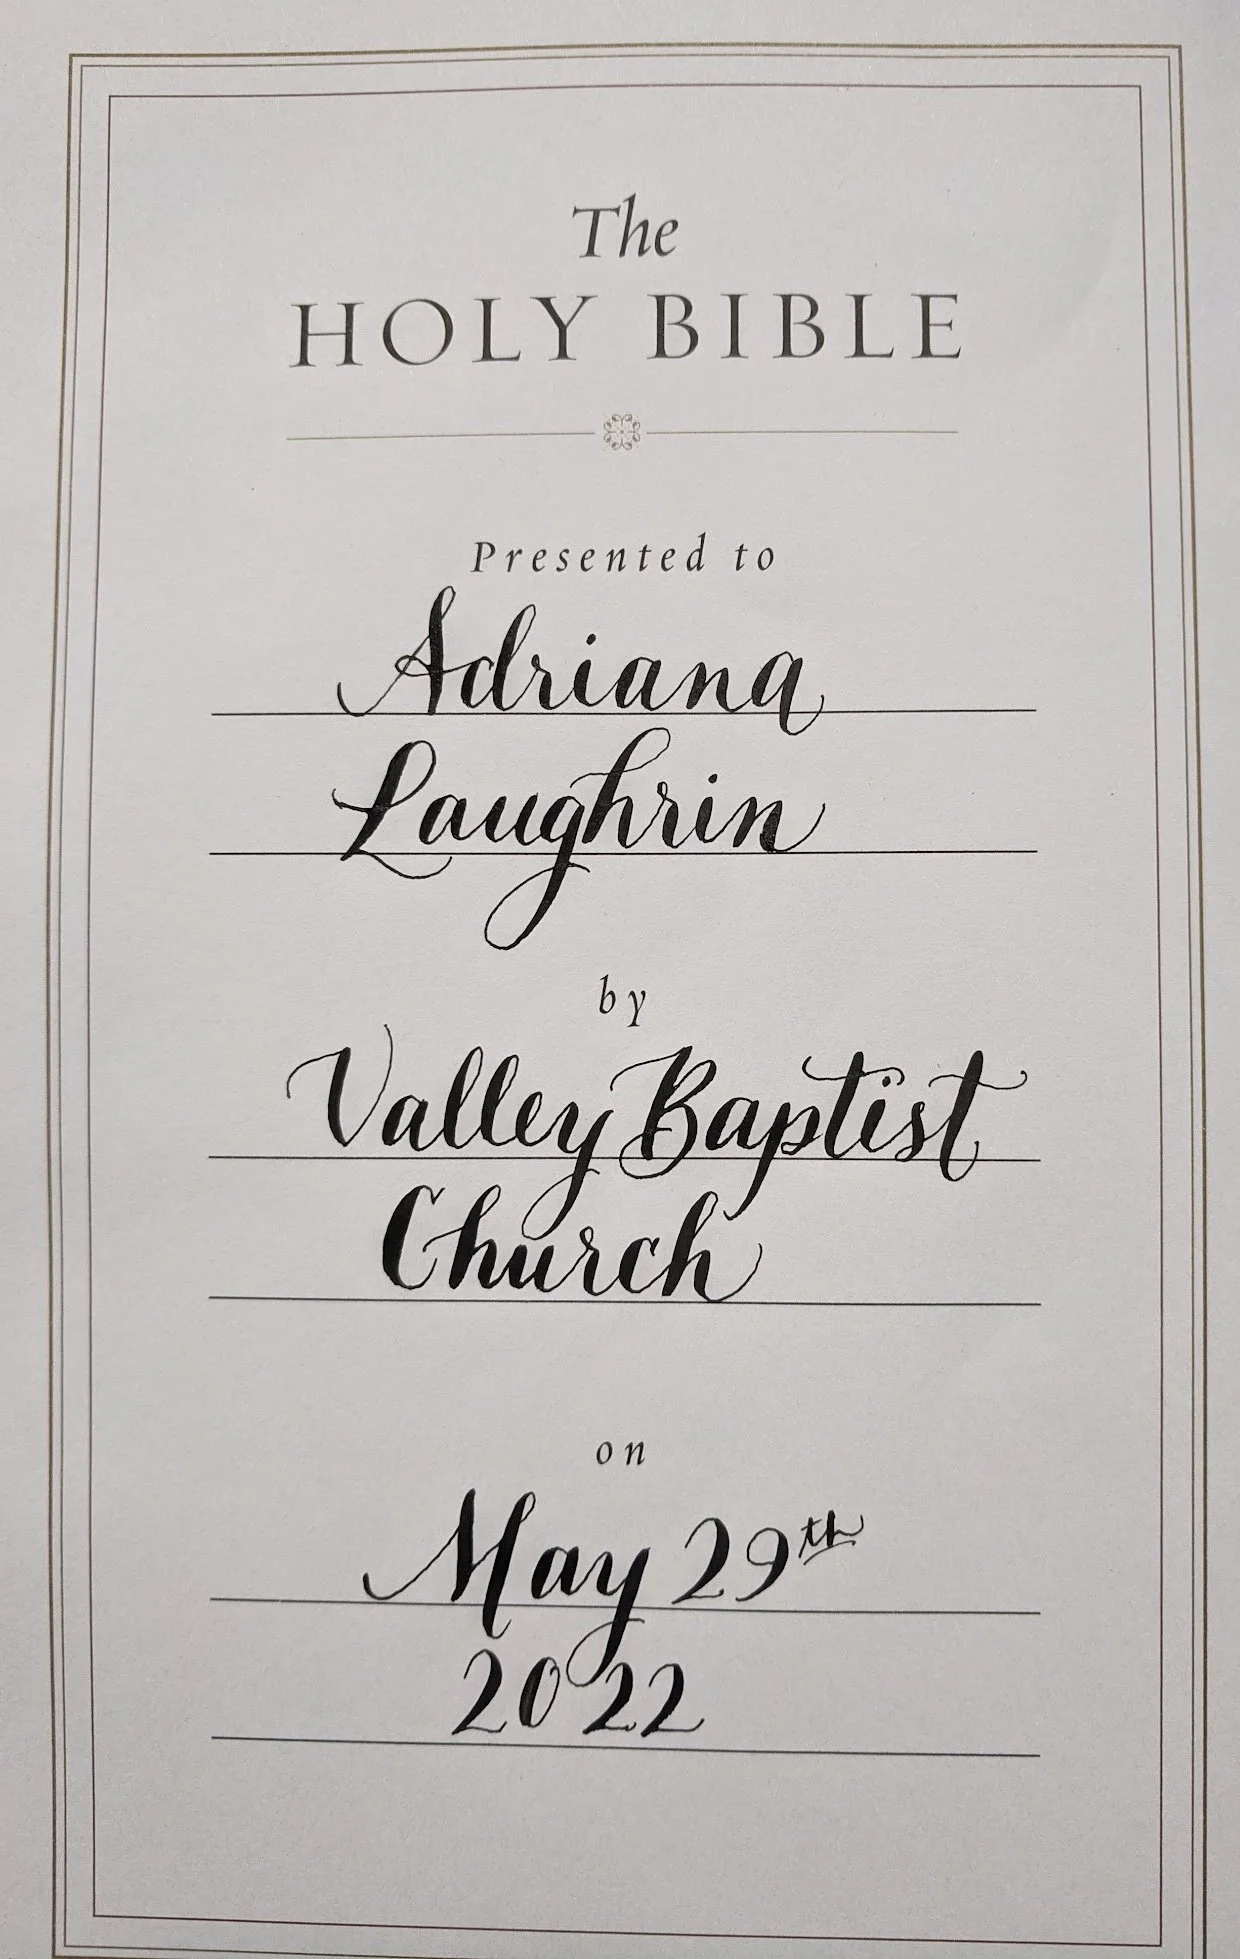 The
HOLY BIBLE
Presented to
Adriana
Laughrin
by
Valley Baptist
Church
on
May 29th
2022